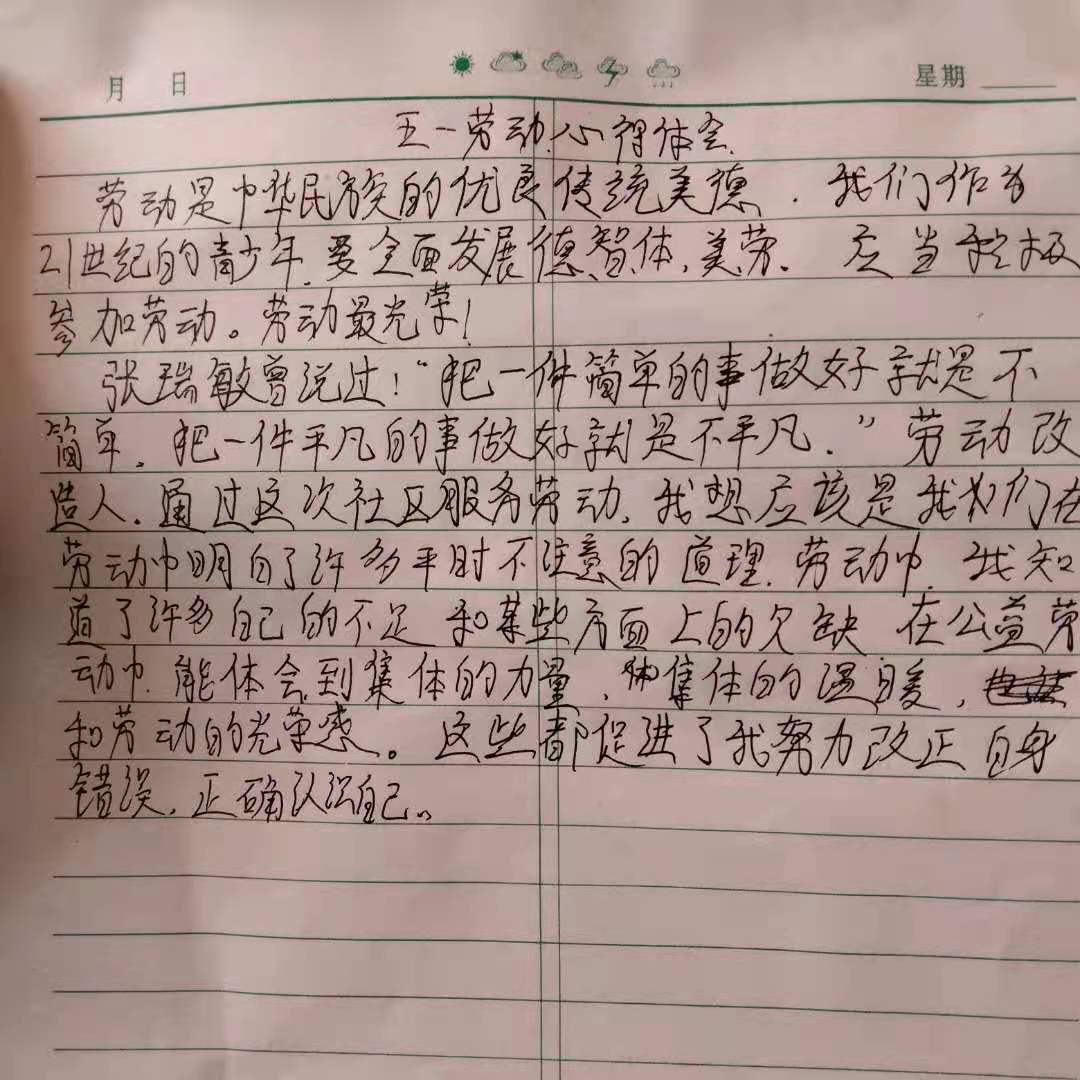 月 日 星期
五一劳动心得体会
劳动是中华民族的优良传统美德．我们作为
21世纪的青少年,要全面发展德、智、体、美、劳．应当积极
参加劳动。劳动最光荣！
张瑞敏曾说过！“把一件简单的事做好就是不
简单，把一件平凡的事做好就是不平凡．”劳动改
造人．通过这次社区服务劳动,我想应该是我们在
劳动中明白了许多平时不注意的道理,劳动中,我知
道了许多自己的不足 和某些方面上的欠缺 在公益劳
动中,能体会到集体的力量，集体的温暖，
和劳动的光荣感。这些都促进了我努力改正自身
错误，正确认识自己。